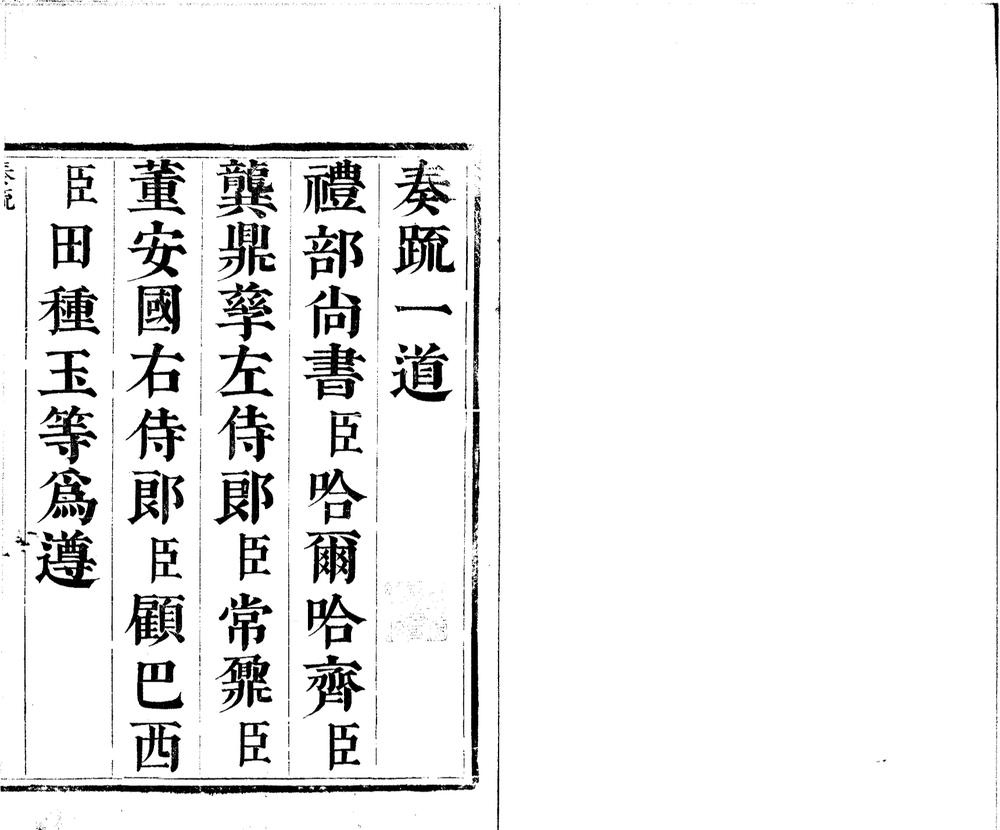 奏疏一道
禮部尚書臣哈爾哈齊臣
龔鼎孳左侍郎臣常鼐臣
董安國右侍郎臣顧巴西
臣田種玉等爲遵
奏疏